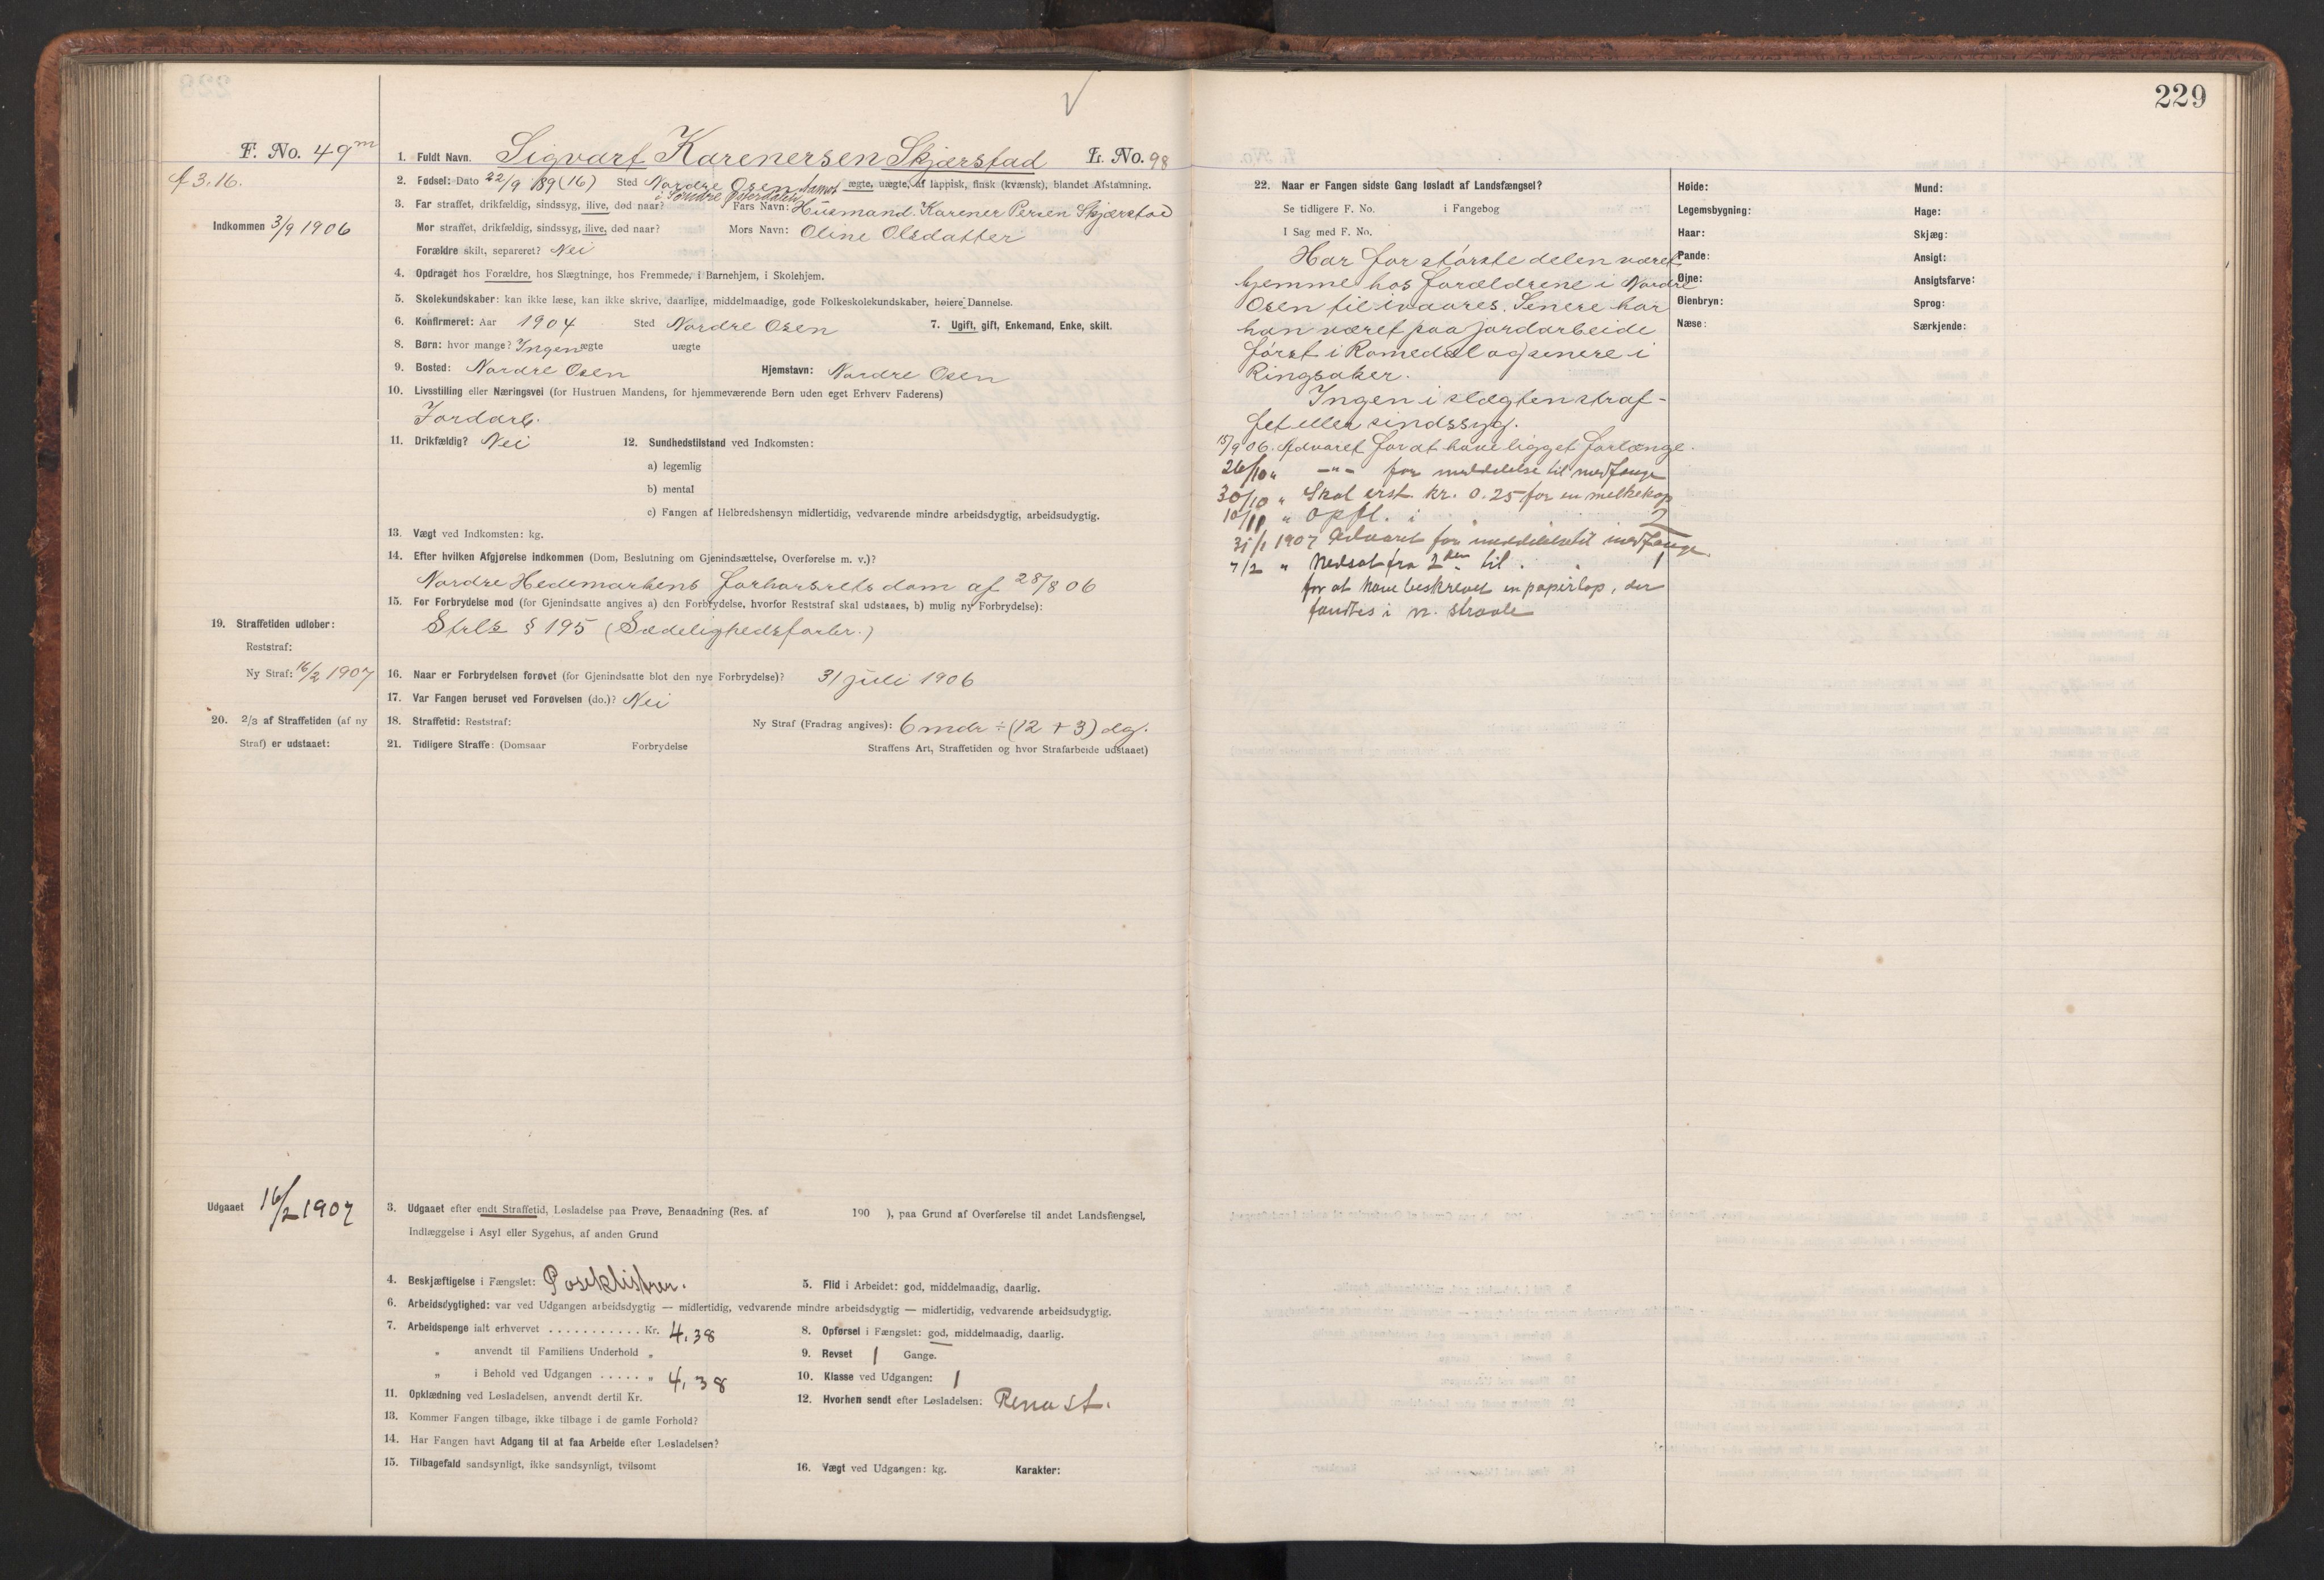 229
F. No. 49m
1. Fuldt Navn. Sigvart Karenersen Skjærstad L. No. 98
2. Fødsel: Dato 22/9 89 (16) Sted Nordre Osen Aamot ægte, uægte, af lappisk, finsk (kvænsk), blandet Afstamning.
i Søndre Østerdalen
3. Far straffet, drikfældig, sindssyg, ilive, død naar? Fars Navn: Husmand Karener Persen Skjærstad
Indkommen 3/9 1906
Mor straffet, drikfældig, sindssyg, ilive, død naar? Mors Navn: Oline Olsdatter
Forældre skilt, separeret? Nei
4. Opdraget hos Forældre, hos Slægtninge, hos Fremmede, i Barnehjem, i Skolehjem.
5. Skolekundskaber: kan ikke læse, kan ikke skrive, daarlige, middelmaadige, gode Folkeskolekundskaber, høiere Dannelse.
6. Konfirmeret: Aar 1904 Sted Nordre Osen 7. Ugift, gift, Enkemand, Enke, skilt.
8. Børn: hvor mange? Ingen ægte uægte
9. Bosted: Nordre Osen Hjemstavn: Nordre Osen
10. Livsstilling eller Næringsvei (for Hustruen Mandens, for hjemmeværende Børn uden eget Erhverv Faderens)
Jordarb.
11. Drikfældig? Nei 12. Sundhedstilstand ved Indkomsten:
a) legemlig
b) mental
c) Fangen af Helbredshensyn midlertidig, vedvarende mindre arbeidsdygtig, arbeidsudygtig.
13. Vægt ved Indkomsten: kg.
14. Efter hvilken Afgjørelse indkommen (Dom, Beslutning om Gjenindsættelse, Overførelse m. v.)?
Nordre Hedemarkens forhørsrets dom af 28/8 06
15. For Forbrydelse mod (for Gjenindsatte angives a) den Forbrydelse, hvorfor Reststraf skal udstaaes, b) mulig ny Forbrydelse):
Strls § 195 (Sædelighedsforbr.)
19. Straffetiden udløber:
Reststraf:
Ny Straf: 16/2 1907
16. Naar er Forbrydelsen forøvet (for Gjenindsatte blot den nye Forbrydelse)? 31 juli 1906
17. Var Fangen beruset ved Forøvelsen (do.)? Nei
20. 2/3 af Straffetiden (af ny
Straf) er udstaaet:
18. Straffetid: Reststraf: Ny Straf (Fradrag angives): 6 mdr ÷ (12 + 3) dg.
21. Tidligere Straffe: (Domsaar Forbrydelse Straffens Art, Straffetiden og hvor Strafarbeide udstaaet)
Udgaaet 16/2 1907
3. Udgaaet efter endt Straffetid, Løsladelse paa Prøve, Benaadning (Res. af 190 ), paa Grund af Overførelse til andet Landsfængsel,
Indlæggelse i Asyl eller Sygehus, af anden Grund
4. Beskjæftigelse i Fængslet: Poseklistren. 5. Flid i Arbeidet: god, middelmaadig, daarlig.
6. Arbeidsdygtighed: var ved Udgangen arbeidsdygtig — midlertidig, vedvarende mindre arbeidsdygtig — midlertidig, vedvarende arbeidsudygtig.
7. Arbeidspenge ialt erhvervet ........... Kr. 4,38 8. Opførsel i Fængslet: god, middelmaadig, daarlig.
„ anvendt til Familiens Underhold „ 9. Revset 1 Gange.
„ i Behold ved Udgangen ..... „ 4,38 10. Klasse ved Udgangen: 1
11. Opklædning ved Løsladelsen, anvendt dertil Kr. 12. Hvorhen sendt efter Løsladelsen: Rena st.
13. Kommer Fangen tilbage, ikke tilbage i de gamle Forhold?
14. Har Fangen havt Adgang til at faa Arbeide efter Løsladelsen?
15. Tilbagefald sandsynligt, ikke sandsynligt, tvilsomt 16. Vægt ved Udgangen: kg. Karakter:
22. Naar er Fangen sidste Gang løsladt af Landsfængsel?
Se tidligere F. No. i Fangebog
I Sag med F. No.
Har for største delen været
hjemme hos forældrene i Nordre
Osen til ivaares. Senere har
han været paa jordarbeide
først i Romedal og senere i
Ringsaker.
Ingen i slægten straf-
fet eller sindssyg.
15/9 06. Advaret for at have ligget forlænge.
26/10 „ —„— for meddelelse til medfange
30/10 „ Skal erst. kr. 0.25 for en melkekop
10/11 „ Opfl. i 2
31/1 1907 Advaret for meddelelse til medfange.
7/2 „ Nedsat fra 2den til 1
for at have beskrevet en papirlap, der
fandtes i
Høide:
Legemsbygning:
Haar:
Pande:
Øine:
Øienbryn:
Næse:
Mund:
Hage:
Skjæg:
Ansigt:
Ansigtsfarve:
Sprog:
Særkjende: